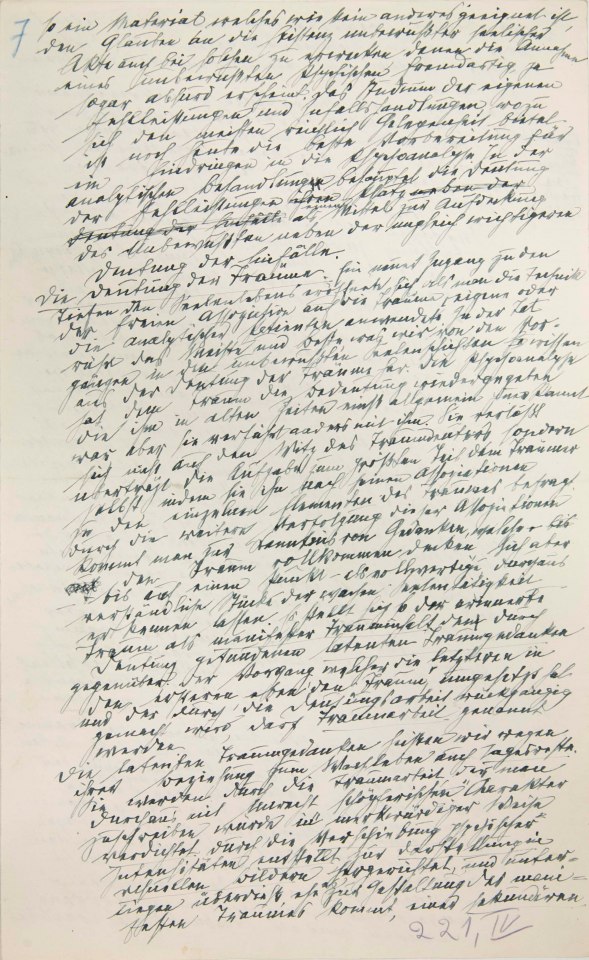 7
so ein Material welches wie kein anderes geeignet ist,
den Glauben an die Existenz unbewußter seelischer
Akte auch bei solchen zu erwecken denen die Annahme
eines unbewußten Psychischen fremdartig ja
sogar absurd erscheint. Das Studium der eigenen
Fehlleistungen und Zufallshandlungen, wozu
sich den meisten reichlich Gelegenheit bietet
ist noch heute die beste Vorbereitung für
ein Eindringen in die Psychoanalyse. In der
analytischen Behandlung behauptet die Deutung
der Fehlleistungen ihren Platz neben der
Deutung der Einfälle als Mittel zur Aufdeckung
des Unbewußten neben der ungleich wichtigeren
Deutung der Einfälle.
Die Deutung der Träume. Ein neuer Zugang zu den
Tiefen des Seelenlebens eröffnete sich als man die Technik
der freien Assoziation auf die Träume, eigene oder
die analytischer Patienten anwendete. In der Tat
rührt das Meiste und Beste was wir von den Vor-
gängen in den unbewußten Seelenschichten wissen
aus der Deutung der Träume her. Die Psychoanalyse
hat dem Traum die Bedeutung wiedergegeben
die ihm in alten Zeiten einst allgemein zuerkannt
war aber sie verfährt anders mit ihm. Sie verläßt
sich nicht auf den Witz des Traumdeuters sondern
überträgt die Aufgabe zum größten Teil dem Träumer
selbst indem sie ihn nach seinen Assoziationen
zu den einzelnen Elementen des Traumes befragt.
Durch die weitere Verfolgung dieser Assoziationen
kommt man zur Kenntnis von Gedanken, welche
den Traum vollkommen decken sich aber
– bis auf einen Punkt – als vollwertige durchaus
verständliche Stücke der wachen Seelentätigkeit
erkennen lassen. Es stellt sich so der erinnerte
Traum als manifester Trauminhalt den durch
Deutung gefundenen latenten Traumgedanken
gegenüber. Der Vorgang welcher die letzteren in
den ersteren, eben den Traum, umgesetzt hat
und der durch die Deutungsarbeit rückgängig
gemacht wird, darf Traumarbeit genannt
werden.
Die latenten Traumgedanken heißen wir wegen
ihrer Beziehung zum Wachleben auch Tagesreste.
Sie werden durch die Traumarbeit der man
durchaus mit Unrecht schöpferischen Charakter
zuschreiben würde in merkwürdiger Weise
verdichtet durch die Verschiebung psychischer
Intensitäten entstellt zur Darstellung in
visuellen Bildern hergerichtet, und unter-
liegen überdies, ehe es zur Gestaltung des mani-
festen Traumes kommt, einer sekundären
221, IV